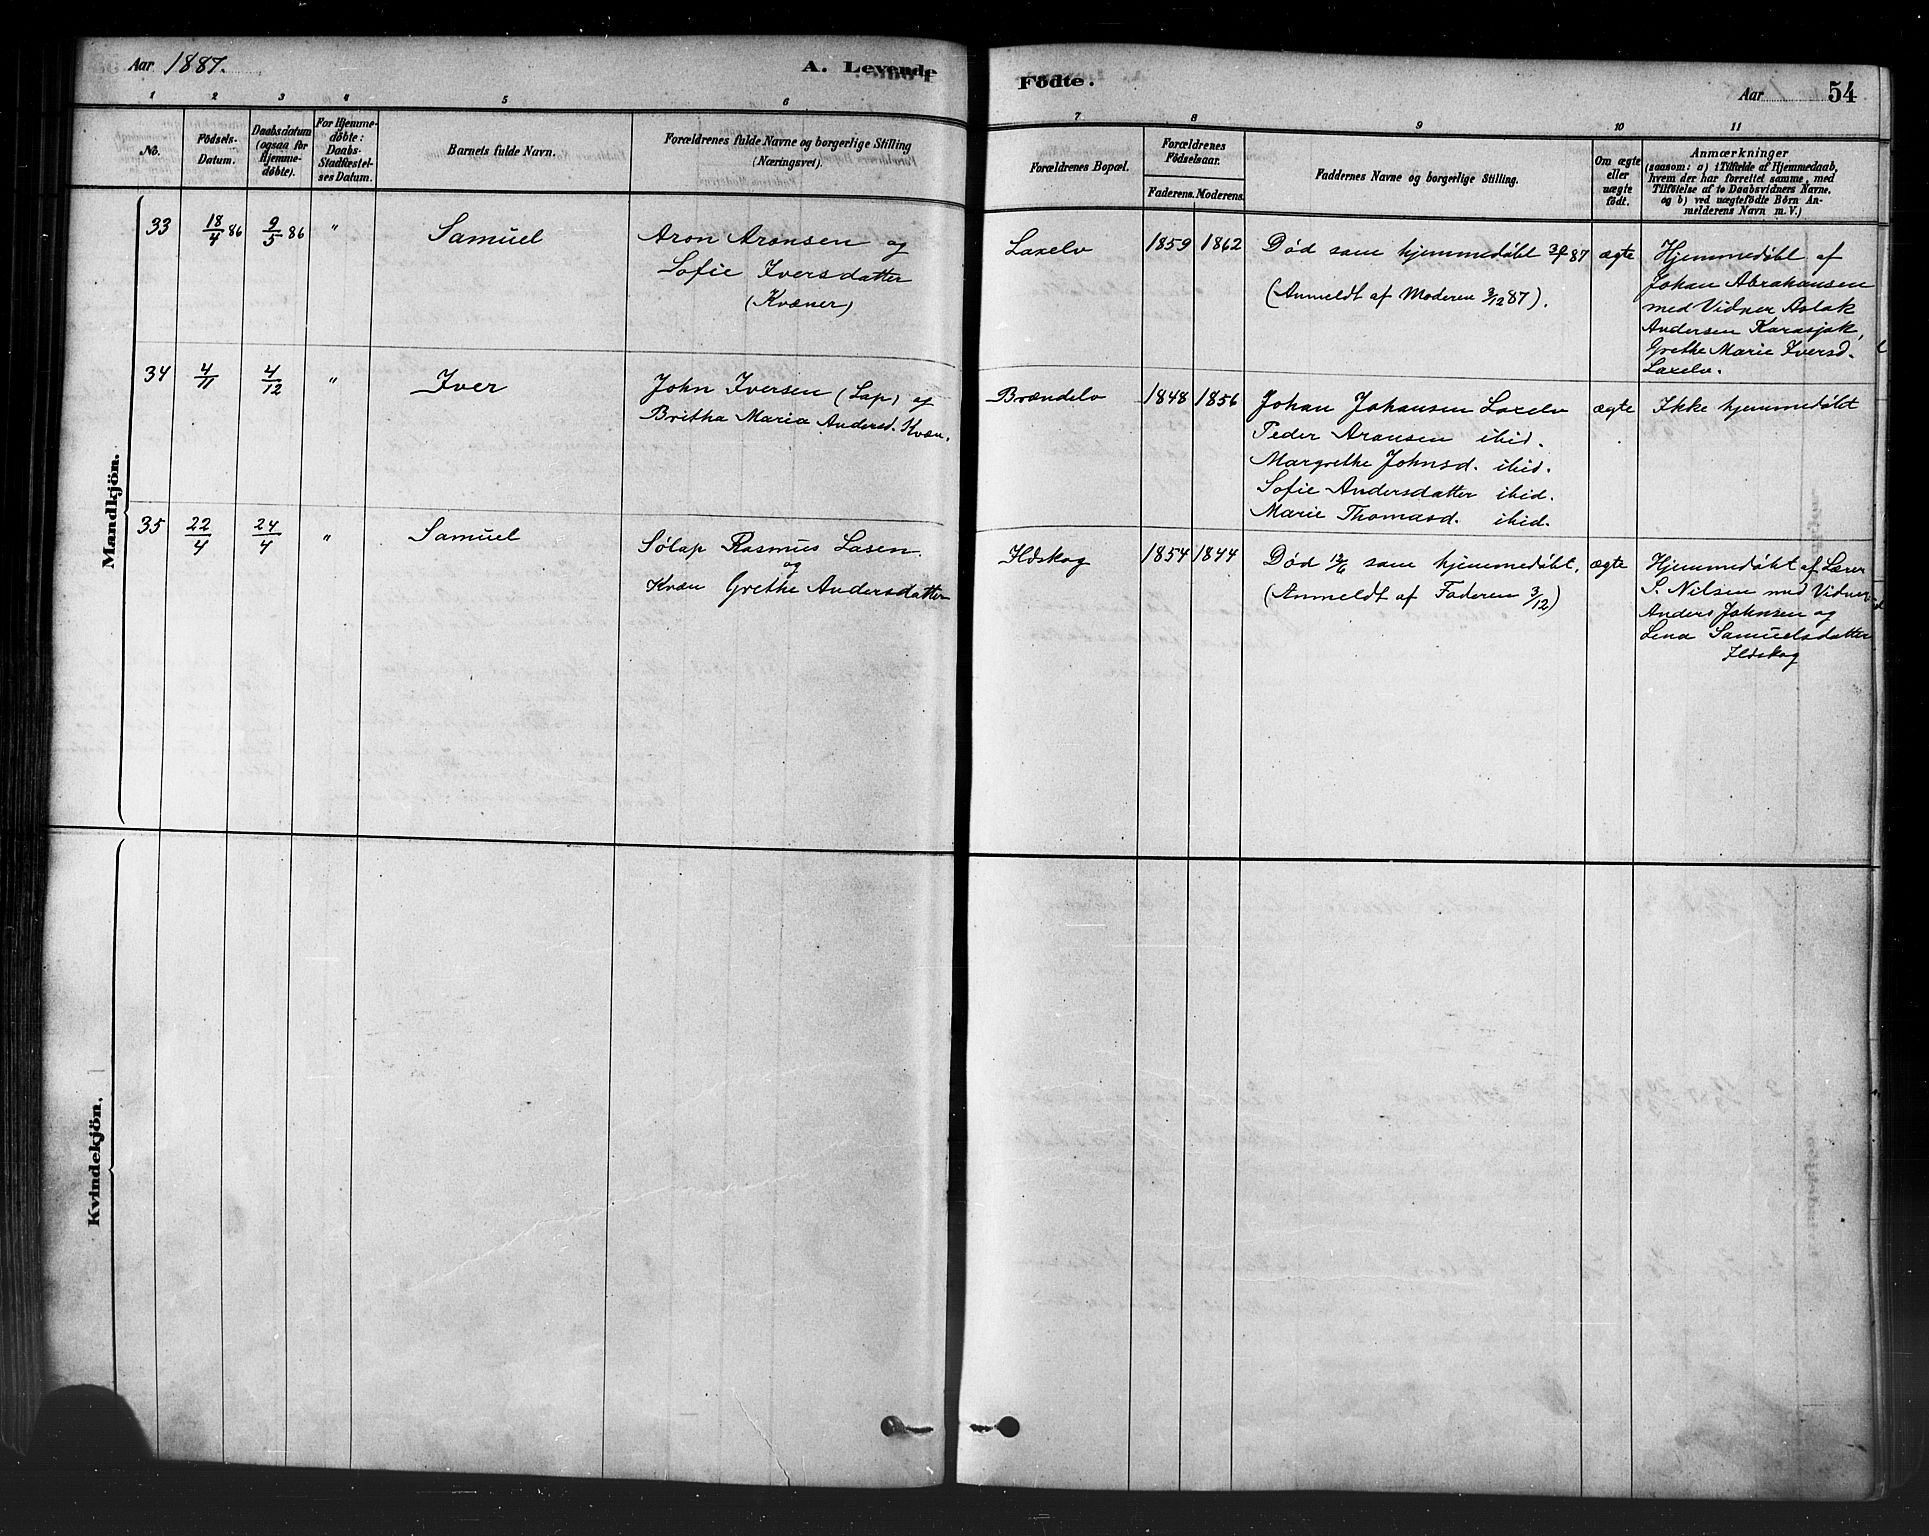 Aar 1887.
A. Levende
Födte.
Aar 54
1 2 3 4 5 6 7 8 9 10 11
No.
Födsels-
Datum.
Daabsdatum
(ogsaa for
Hjemme-
døbte).
For Hjemme-
døbte:
Daabs-
Stadfæstel-
ses Datum.
Barnets fulde Navn.
Forældrenes fulde Navne og borgerlige Stilling
(Næringsvei).
Forældrenes Bopæl.
Forældrenes
Födselsaar.
Faderens. Moderens.
Faddernes Navne og borgerlige Stilling.
Om ægte
eller
uægte
født.
Anmærkninger
(saasom: a) i Tilfælde af Hjemmedaab,
hvem der har forrettet samme, med
Tilføielse af to Daabsvidners Navne,
og b) ved uægtefødte Börn An-
melderens Navn m. V.)
Mandkjön.
33 18/4 86 9/5 86 " Samuel
Aron Aronsen og
Sofie Iversdatter
(Kvæner)
Laxelv 1859 1862
Død som hjemmedøbt 87
(Anmeldt af Moderen 3/12 87).
ægte
Hjemmedøbt af
Johan Abrahamsen
med Vidner Aslak
Andersen Karasjok,
Grethe Marie Iversd.
Laxelv.
34 4/11 4/12 " Iver
John Iversen (Lap) og
Britha Maria Andersd. Kvæn.
Brændelv 1848 1856
Johan Johansen Laxelv
Peder Aronsen ibid.
Margrethe Johnsd. ibid.
Sofie Andersdatter ibid.
Marie Thomasd. ibid.
ægte
Ikke hjemmedøbt
35 22/4 24/4 " Samuel
Sølap Rasmus Lasen
og
Kvæn Grethe Andersdatter
Ildskog 1854 1844
Død 12/6 som hjemmedøbt.
(Anmeldt af Faderen 3/12)
ægte
Hjemmedøbt af Lærer
S. Nilsen med Vidner
Anders Johnsen og
Lena Samuelsdatter
Ildskog
Kvindekjön.